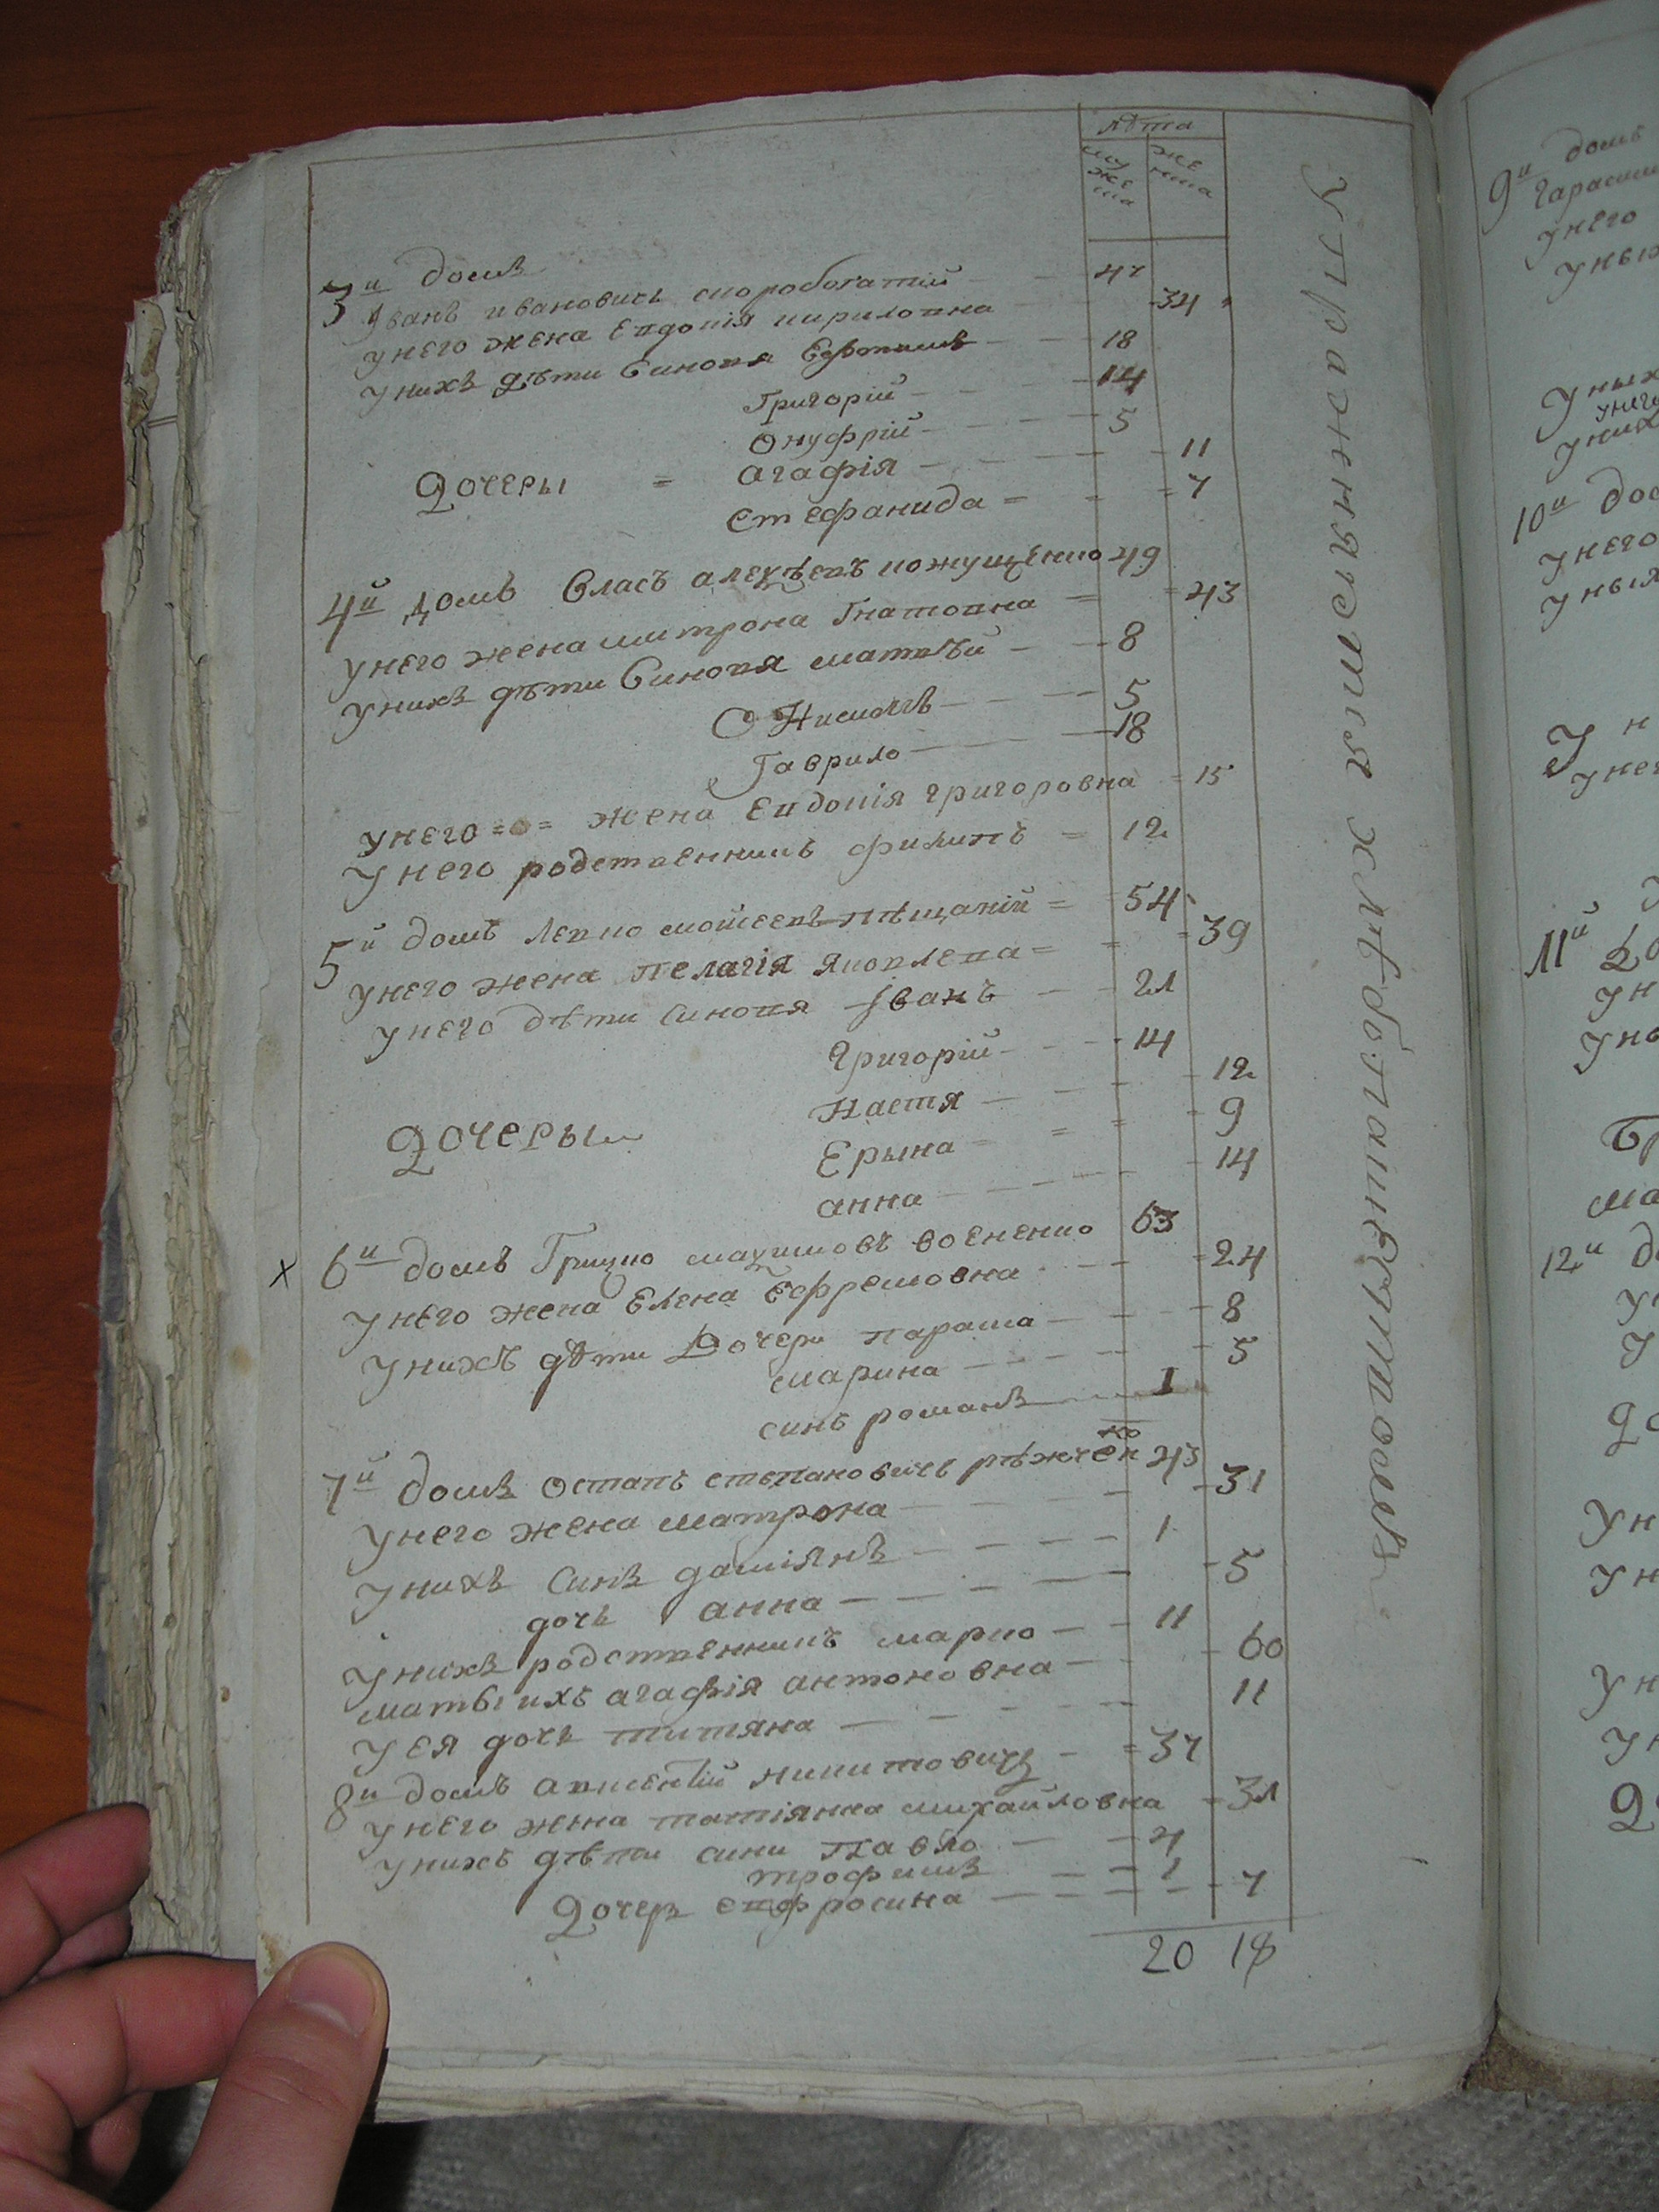 лѣта
мужеска
женска
3й домъ
Іванъ ивановичь скоробогатій 47
унего жена Евдокія кириловна 34
унихъ дѣти Синовя Ефтимъ 18
Григорій 14
Онуфрій 5
Дочеры = агафія 11
Стефанида = 7
4й домъ Власъ алексѣевъ кожущенко 49
унего жена митрона Гнатовна = 43
унихъ дѣти Синовя матвѣй 8
Онисимъ 5
Гаврило 18
унего = жена Евдокія григоровна = 15
унего родственникъ филипъ = 12
5й домъ Левко мойсеевъ пѣщаній = 54
унего жена пелагія яковлева = 39
унего дѣти Синовя Іванъ 21
Григорій 14
Дочеры Настя 12
Ерына 9
анна 14
х 6й домъ Грицко максимовъ воененко 63
унего жена Елена Ефремовна 24
унихъ дѣти Дочери параша 8
марина 5
синъ романъ 1
7й домъ Остапъ степановичъ рѣжченко 43
унего жена матрона 31
унихъ Синъ даміянъ 1
дочь анна 5
унихъ родственникъ марко 11
маты ихъ агафія антоновна 60
уея дочь титяна 11
8й домъ авксентій никитовичъ = 37
унего жена татіянна михайловна 31
унихъ дѣти сини Павло 4
трофимъ 1
Дочер Евфросина 7
20 18
Упражняется хлѣбопашествомъ
9й домъ
унего
10й
унего
11й
12й